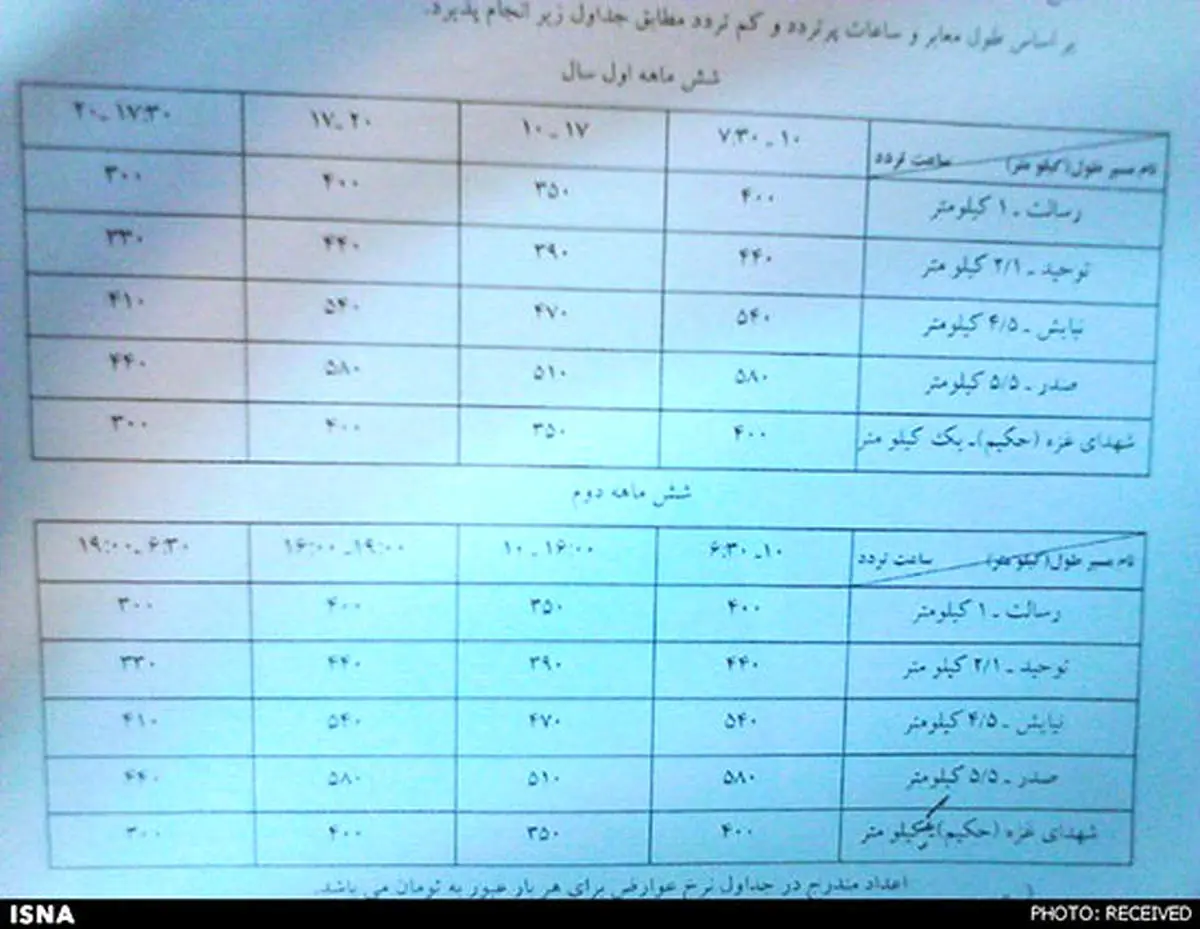 بر اساس طول معابر و ساعات پرتردد و کم تردد مطابق جداول زیر انجام پذیرد.
شش ماهه اول سال
نام مسیر طول(کیلو متر) ساعت تردد ۱۰ ـ ۷:۳۰ ۱۷ ـ ۱۰ ۲۰ ـ ۱۷ ۱۷:۳۰ ـ ۲۰
رسالت ـ ۱ کیلومتر ۴۰۰ ۳۵۰ ۴۰۰ ۳۰۰
توحید ـ ۲/۱ کیلو متر ۴۴۰ ۳۹۰ ۴۴۰ ۳۳۰
نیایش ـ ۴/۵ کیلومتر ۵۴۰ ۴۷۰ ۵۴۰ ۴۱۰
صدر ـ ۵/۵ کیلومتر ۵۸۰ ۵۱۰ ۵۸۰ ۴۴۰
شهدای غزه (حکیم)ـ یک کیلو متر ۴۰۰ ۳۵۰ ۴۰۰ ۳۰۰
شش ماهه دوم
نام مسیر طول(کیلو متر) ساعت تردد ۱۰ـ ۶:۳۰ ۱۶:۰۰ ـ ۱۰ ۱۹:۰۰ـ ۱۶:۰۰ ۶:۳۰ ـ ۱۹:۰۰
رسالت ـ ۱ کیلومتر ۴۰۰ ۳۵۰ ۴۰۰ ۳۰۰
توحید ـ ۲/۱ کیلو متر ۴۴۰ ۳۹۰ ۴۴۰ ۳۳۰
نیایش ـ ۴/۵ کیلومتر ۵۴۰ ۴۷۰ ۵۴۰ ۴۱۰
صدر ـ ۵/۵ کیلومتر ۵۸۰ ۵۱۰ ۵۸۰ ۴۴۰
شهدای غزه (حکیم) کیلو متر ۴۰۰ ۳۵۰ ۴۰۰ ۳۰۰
اعداد مندرج در جداول نرخ عوارض برای هر بار عبور به تومان می باشد.
ISNA PHOTO: RECEIVED